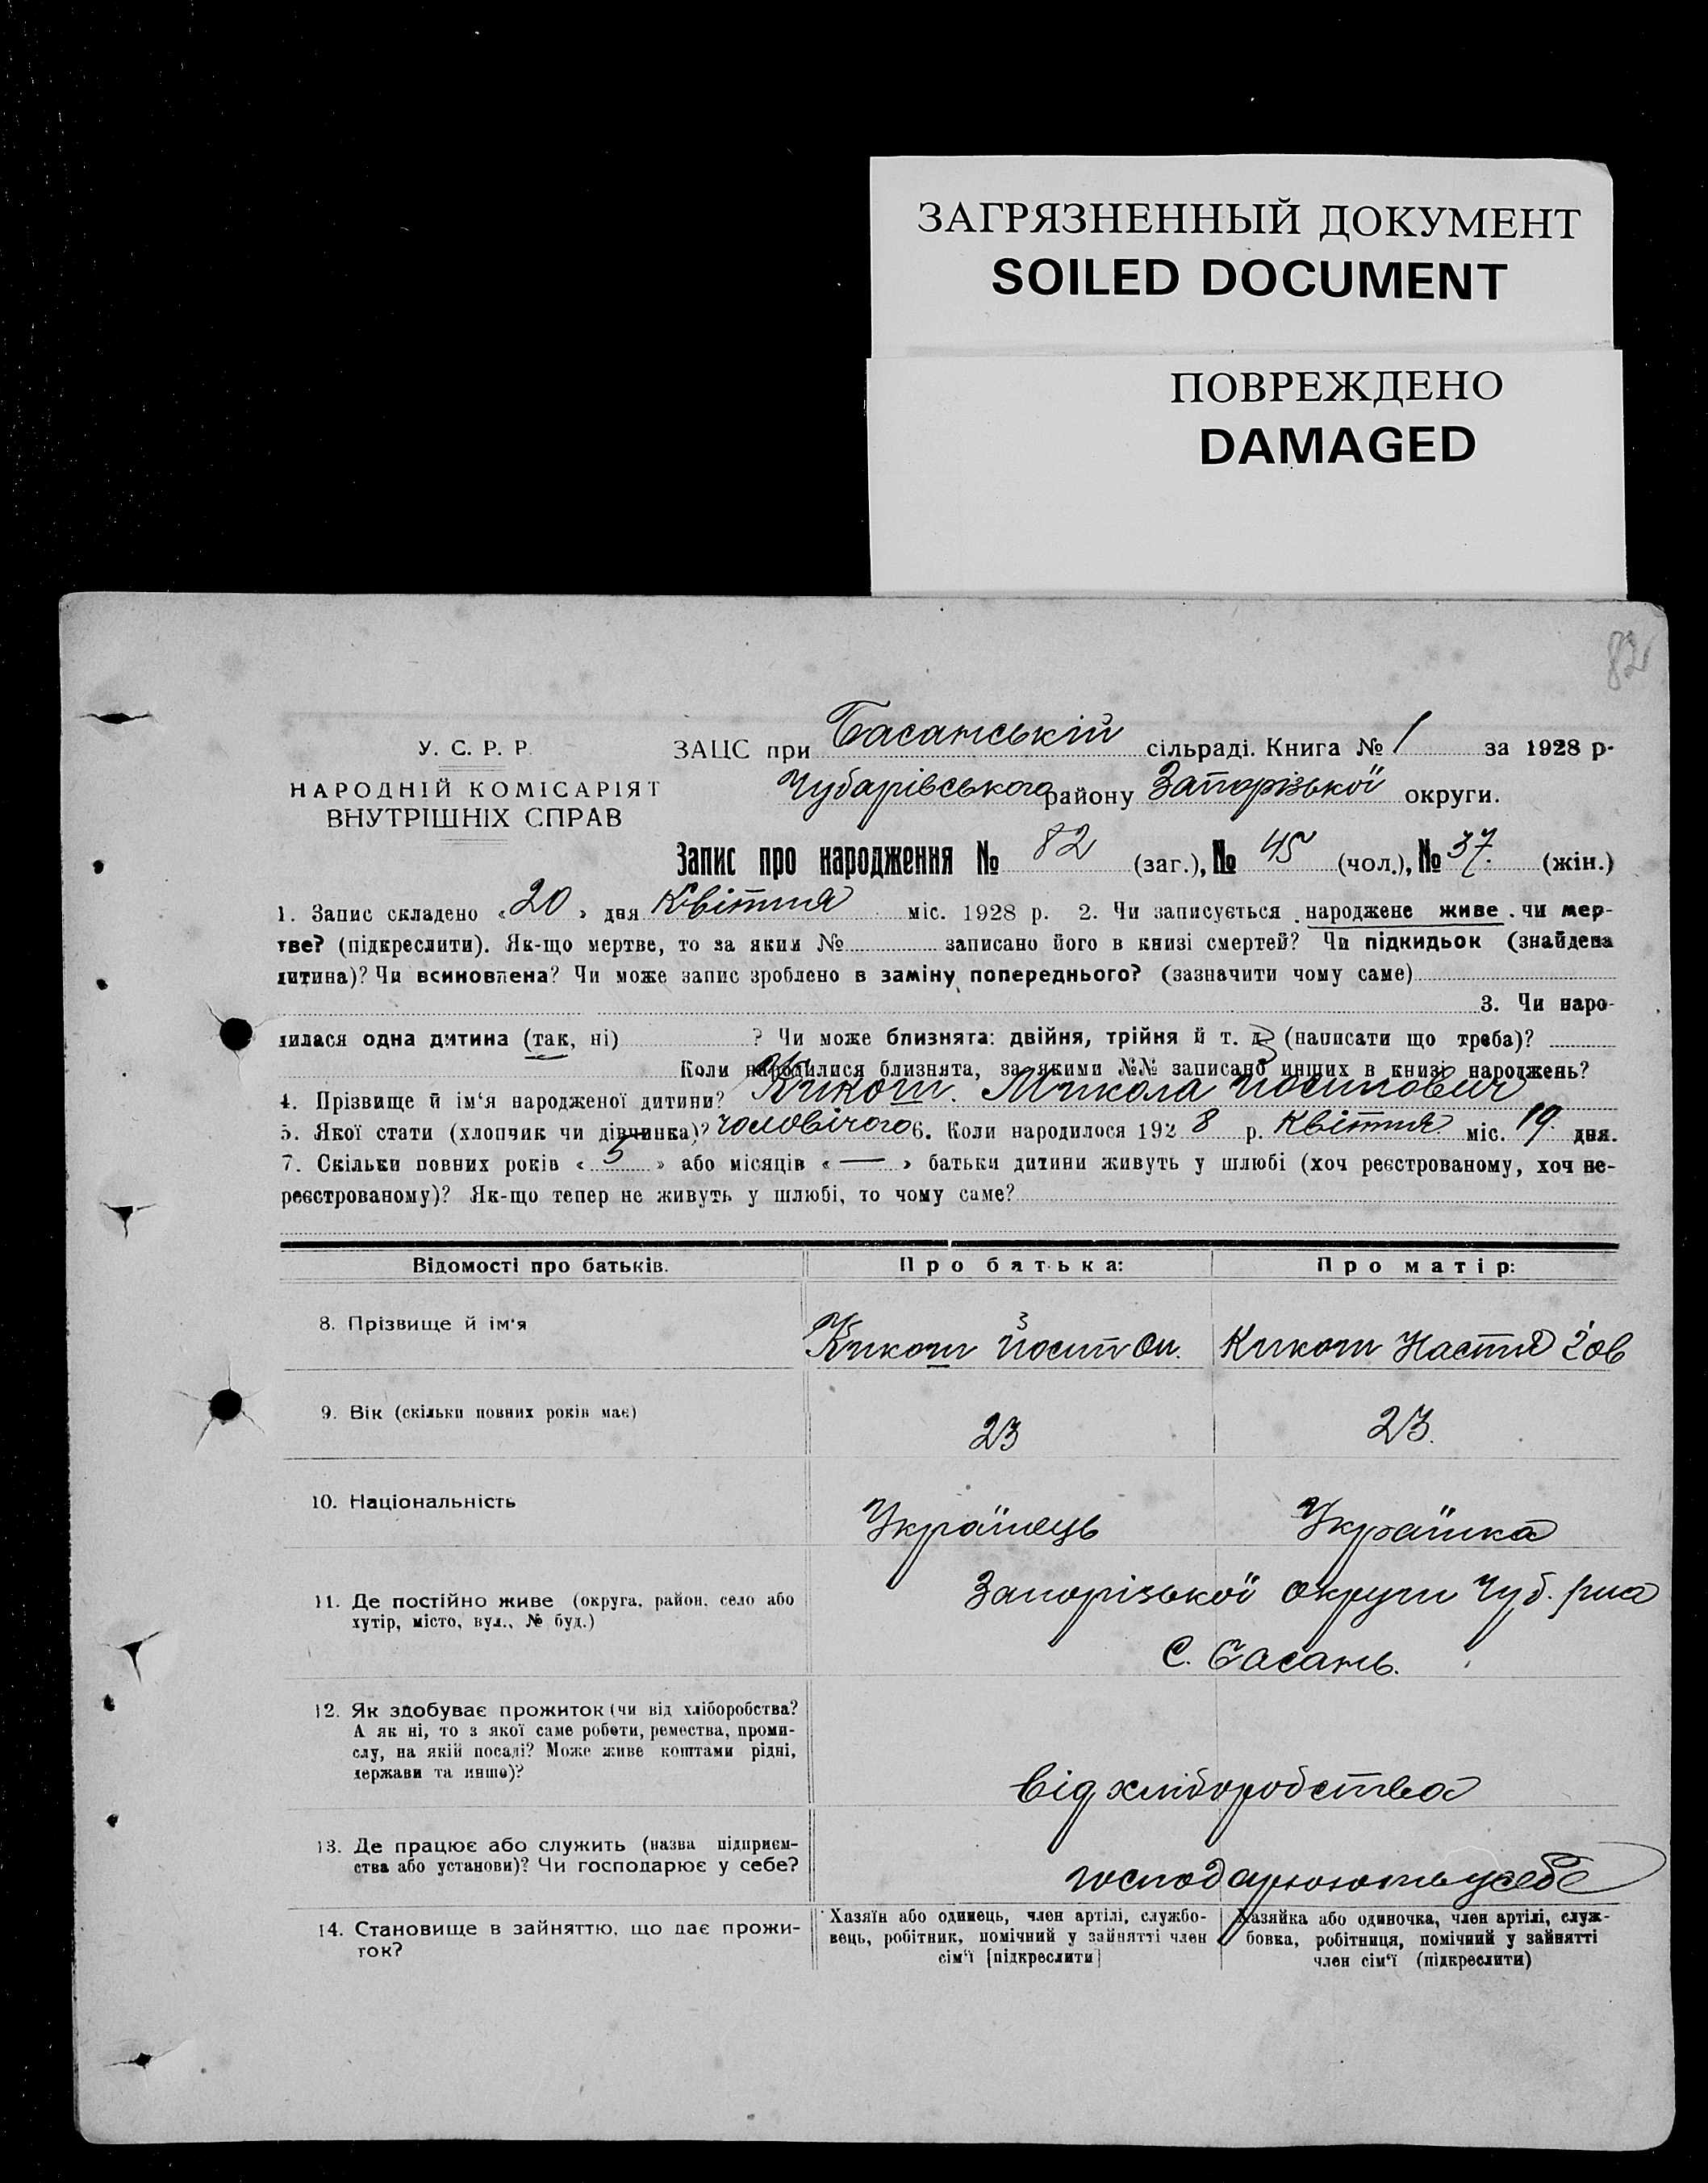 ЗАГРЯЗНЕННЫЙ ДОКУМЕНТ
SOILED DOCUMENT
ПОВРЕЖДЕНО
DAMAGED
82
У. С. Р. Р.
НАРОДНІЙ КОМІСАРІЯТ
ВНУТРІШНІХ СПРАВ
ЗАЦС при Басанській сільраді. Книга № 1 за 1928 р.
Чубарівського району Запорізької округи.
Запис про народження № 82 (заг.), № 45 (чол.), № 37. (жін.)
1. Запис складено «20» дня Квітня міс. 1928 р. 2. Чи записується народжене живе чи мер-
тве? (підкреслити). Як-що мертве, то за яким № записано його в книзі смертей? Чи підкидьок (знайдена
дитина)? Чи всиновлена? Чи може запис зроблено в заміну попереднього? (зазначити чому саме)
3. Чи наро-
дилася одна дитина (так, ні) ? Чи може близнята: двійня, трійня й т. д. (написати що треба)?
Коли народилися близнята, за якими №№ записано инших в книзі народжень?
4. Прізвище й ім'я народженої дитини? Кикот. Микола Йосипович
5. Якої стати (хлопчик чи дівчинка)? чоловічого 6. Коли народилося 1928 р. Квітня міс. 19 дня.
7. Скільки повних років «5» або місяців «—» батьки дитини живуть у шлюбі (хоч реєстрованому, хоч не-
реєстрованому)? Як-що тепер не живуть у шлюбі, то чому саме?
Відомості про батьків. Про батька: Про матір:
8. Прізвище й ім'я Кикот Йосип Кикот Настя
9. Вік (скільки повних років має) 23 23.
10. Національність Українець Українка
11. Де постійно живе (округа, район, село або
хутір, місто, вул., № буд.)
Запорізької округи Чуб. р-на
С. Басань.
12. Як здобуває прожиток (чи від хліборобства?
А як ні, то з якої саме роботи, ремества, проми-
слу, на якій посаді? Може живе коштами рідні,
держави та инше)?
від хліборобства
13. Де працює або служить (назва підприєм-
ства або установи)? Чи господарює у себе?
господарюють у себе
14. Становище в зайняттю, що дає прожи-
ток?
Хазяїн або одинець, член артілі, службо-
вець, робітник, помічний у зайнятті член
сім'ї [підкреслити]
Хазяйка або одиночка, член артілі, служ-
бовка, робітниця, помічний у зайнятті
член сім'ї (підкреслити)